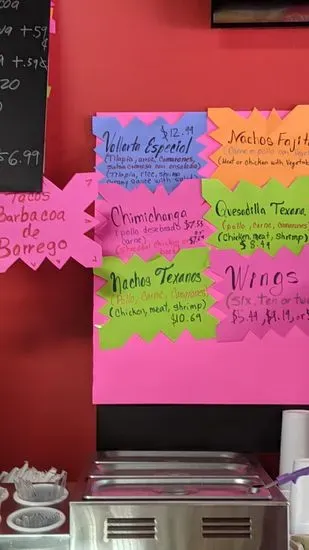 +.59¢
+.59¢
20
$6.99
Tacos
Barbacoa
de
Borrego
Vallarta Especial $12.99
(Tilapia, arroz, Camarones,
salsa cremosa con ensalada)
(Tilapia, rice, shrimp
creamy sauce with salad)
Nachos Fajit
(Carne o pollo con Veget
(Meat or chicken with Vegetab
Chimichanga
(pollo desebrado $7.55
carne)
Quesadilla Texana
(pollo, carne, Camarones)
(Chicken, meat, shrimp)
$8.49
Nachos Texanos
(Pollo, Carne, Camarones)
(Chicken, meat, shrimp)
$10.69
Wings
(Six, ten or tw
$5.49, $9.19, or